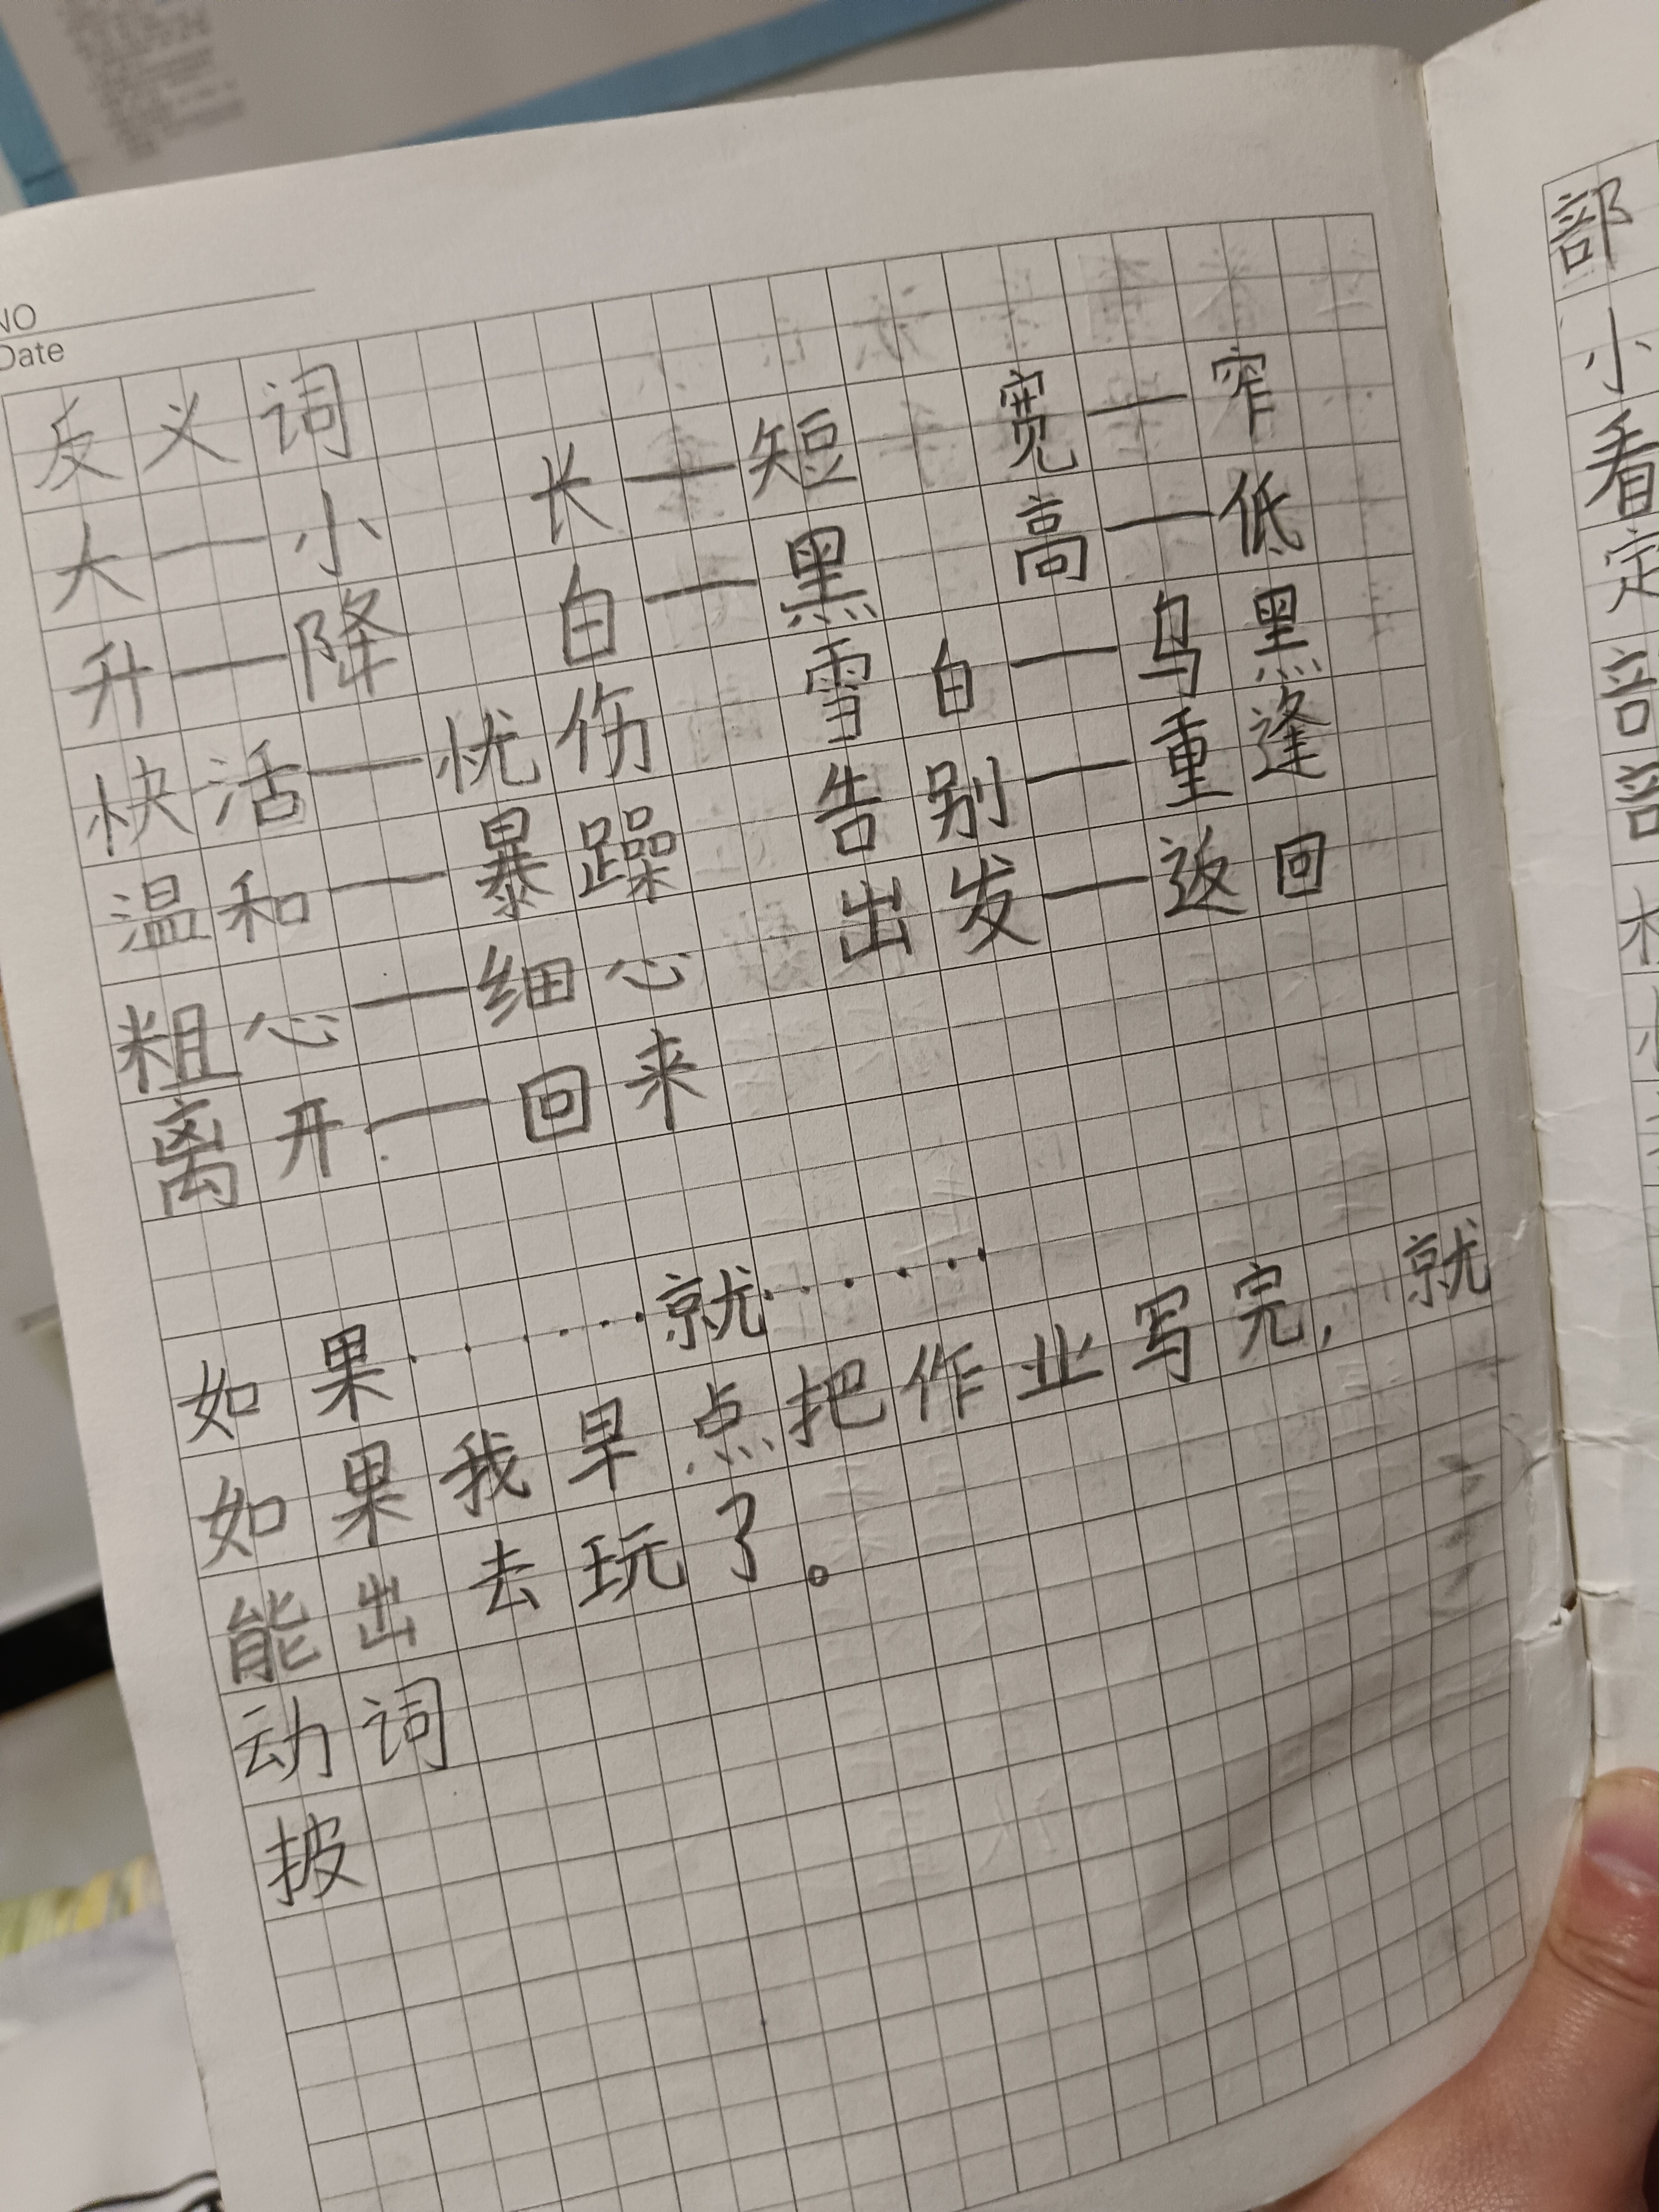 NO
Date
反义词
大—小 长—短 宽—窄
升—降 白—黑 高—低
快活—忧伤 雪白—乌黑
温和—暴躁 告别—重逢
粗心—细心 出发—返回
离开—回来
如果......就......
如果我早点把作业写完，就
能出去玩了。
动词
披
部
小
看
定
部
部